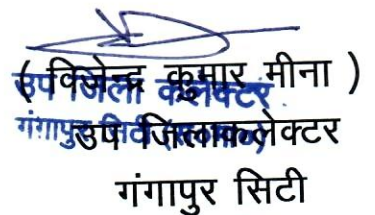 ( विजेन्द्र कुमार मीना )
उप जिला कलेक्टर
गंगापुर सिटी
उप जिलाकलेक्टर
गंगापुर सिटी